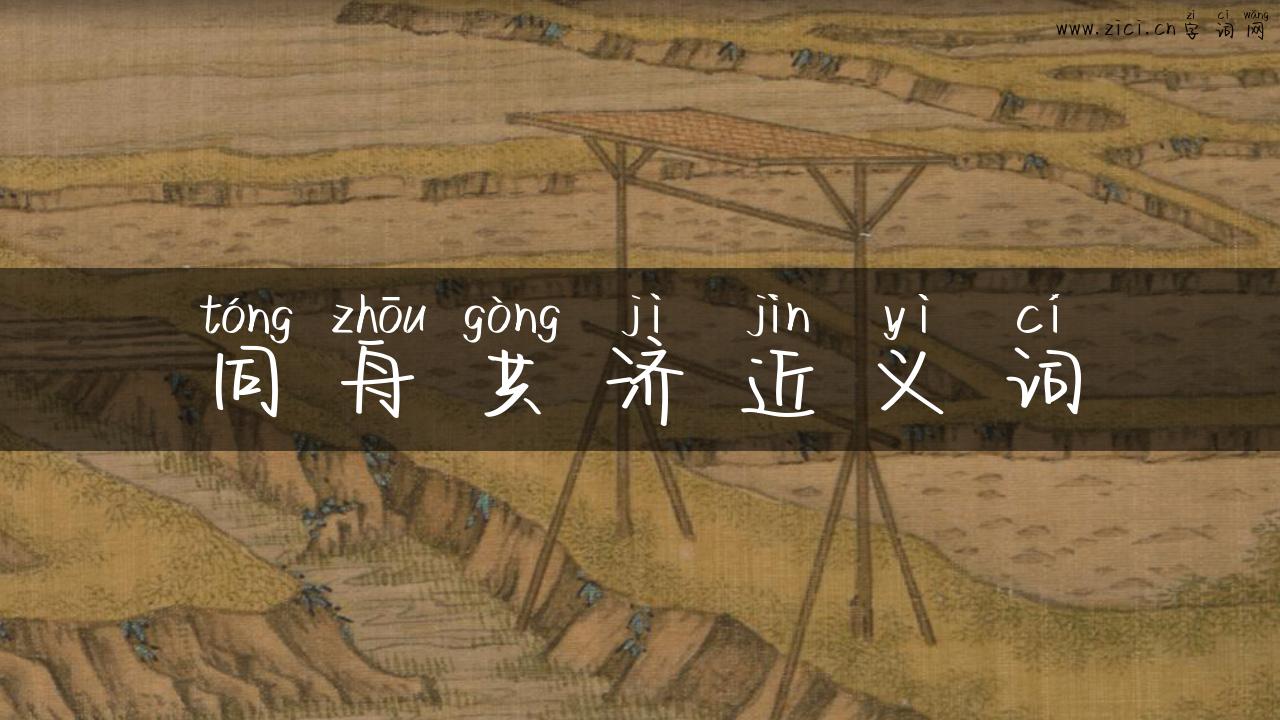 zì cí wǎng
www.zici.cn 字词网
tóng zhōu gòng jì jìn yì cí
同舟共济近义词